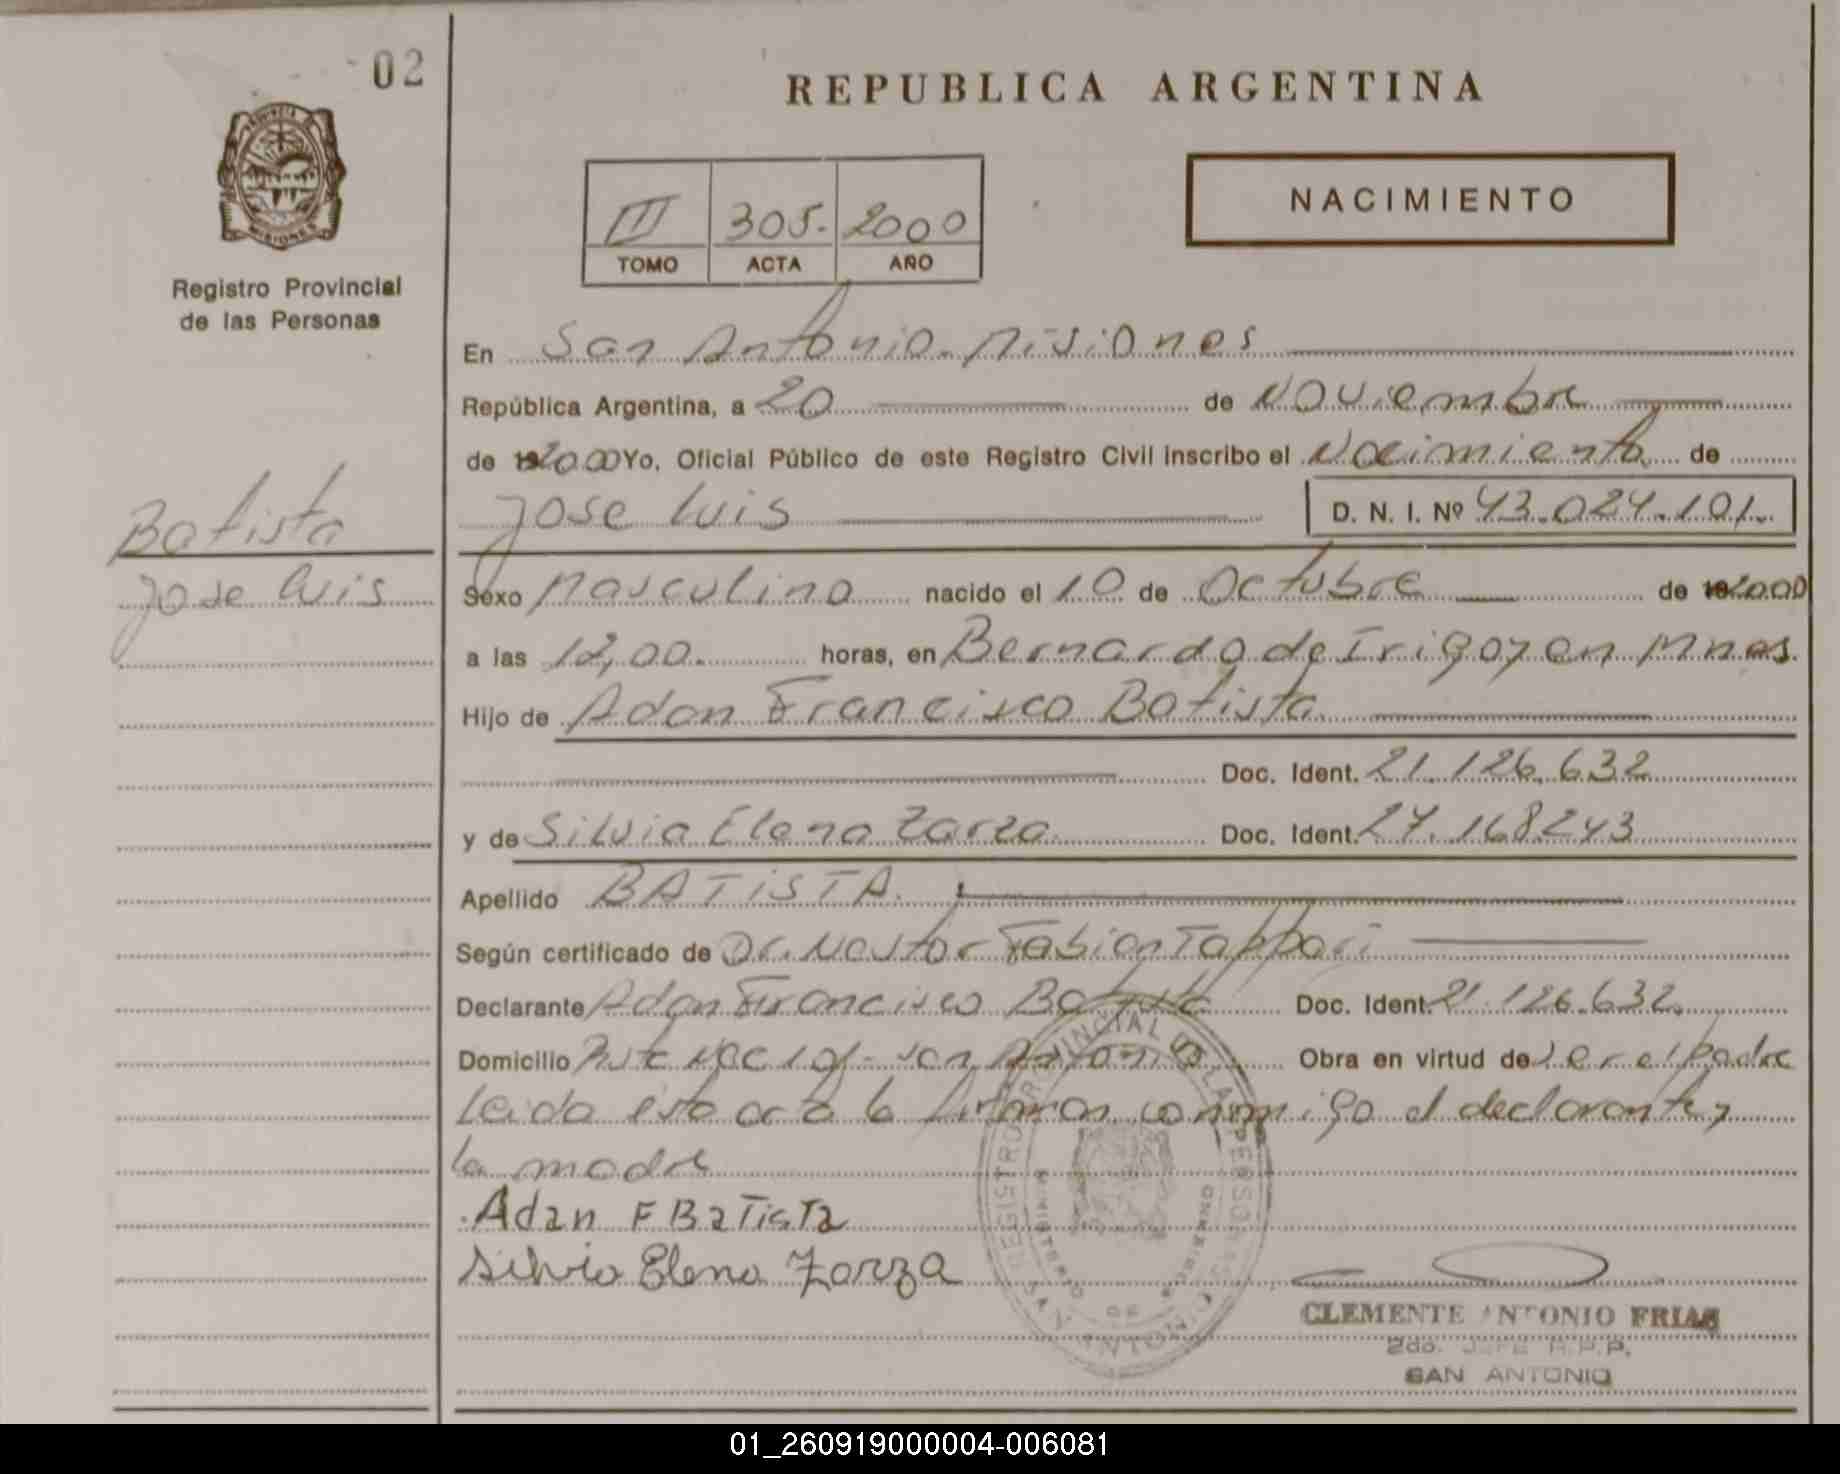 02
PROVINCIA DE
MISIONES
Registro Provincial
de las Personas
Batista
Jose Luis
REPUBLICA ARGENTINA
III 305. 2000
TOMO ACTA AÑO
NACIMIENTO
En San Antonio. Misiones
República Argentina, a 20 de Noviembre
de 2000 Yo, Oficial Público de este Registro Civil inscribo el Nacimiento de
Jose Luis D. N. I. Nº 43.024.101.
Sexo Masculino nacido el 10 de Octubre de 2000
a las 12,00. horas, en Bernardo de Irigoyen Mnes.
Hijo de Adan Francisco Batista
Doc. Ident. 21.126.632
y de Silvia Elena Zarza Doc. Ident. 24.168243
Apellido BATISTA.
Según certificado de Dr. Nestor Fabian Tappari
Declarante Adan Francisco Batista Doc. Ident. 21.126.632.
Domicilio Pste Nacional - San Antonio Obra en virtud de ser el padre
leida esta acta la firman conmigo el declarante y
la madre
Adan F Batista
Silvia Elena Zarza
REGISTRO PROVINCIAL DE LAS PERSONAS
MINISTERIO DE GOBIERNO
SAN ANTONIO
CLEMENTE ANTONIO FRIAS
2do. JEFE R.P.P.
SAN ANTONIO
01_260919000004-006081